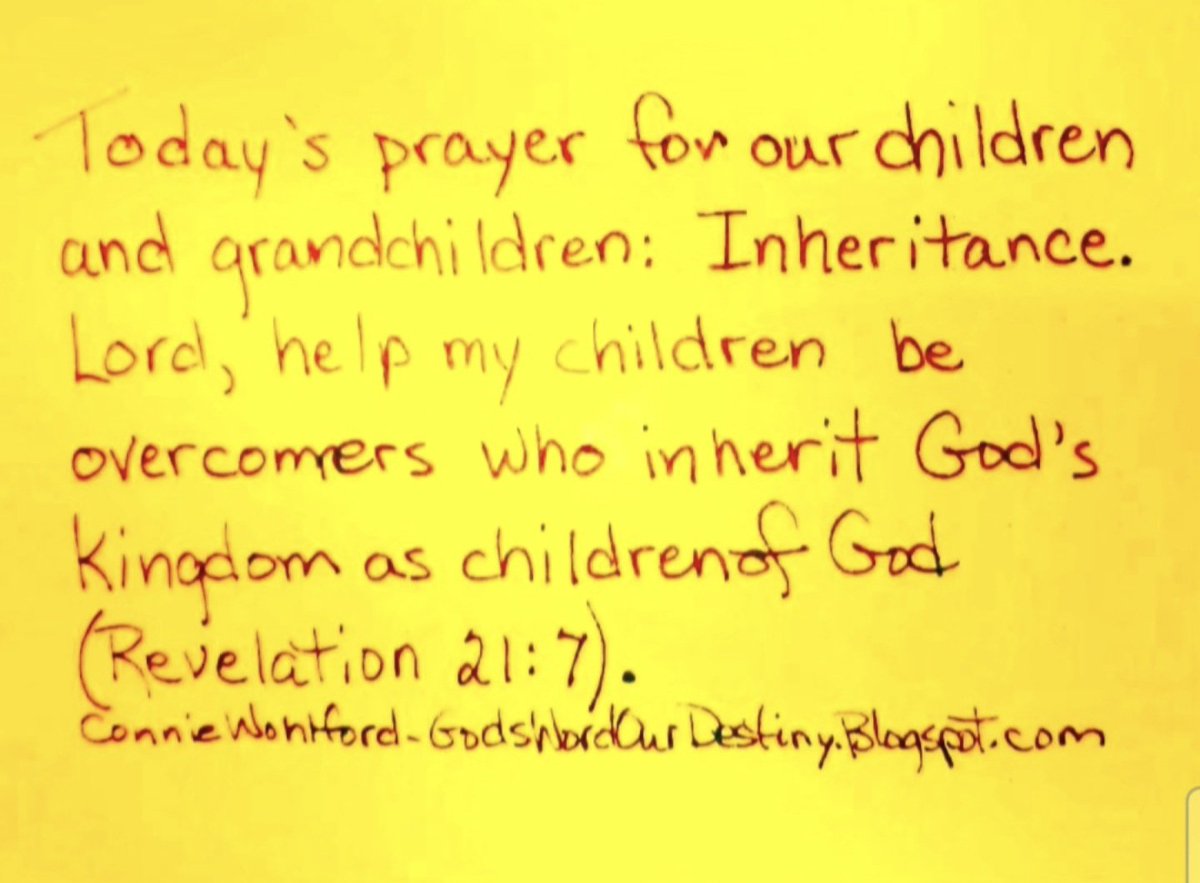 Today's prayer for our children
and grandchildren: Inheritance.
Lord, help my children be
overcomers who inherit God's
Kingdom as children of God
(Revelation 21:7).
Connie Wohlford-GodsWordOurDestiny.Blogspot.com